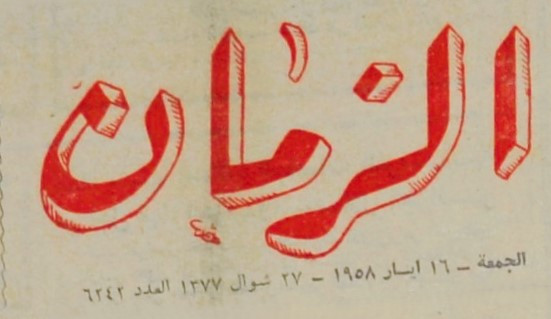 الزمان
الجمعة - ١٦ ايار ١٩٥٨ - ٢٧ شوال ١٣٧٧ العدد ٦٢٤٢